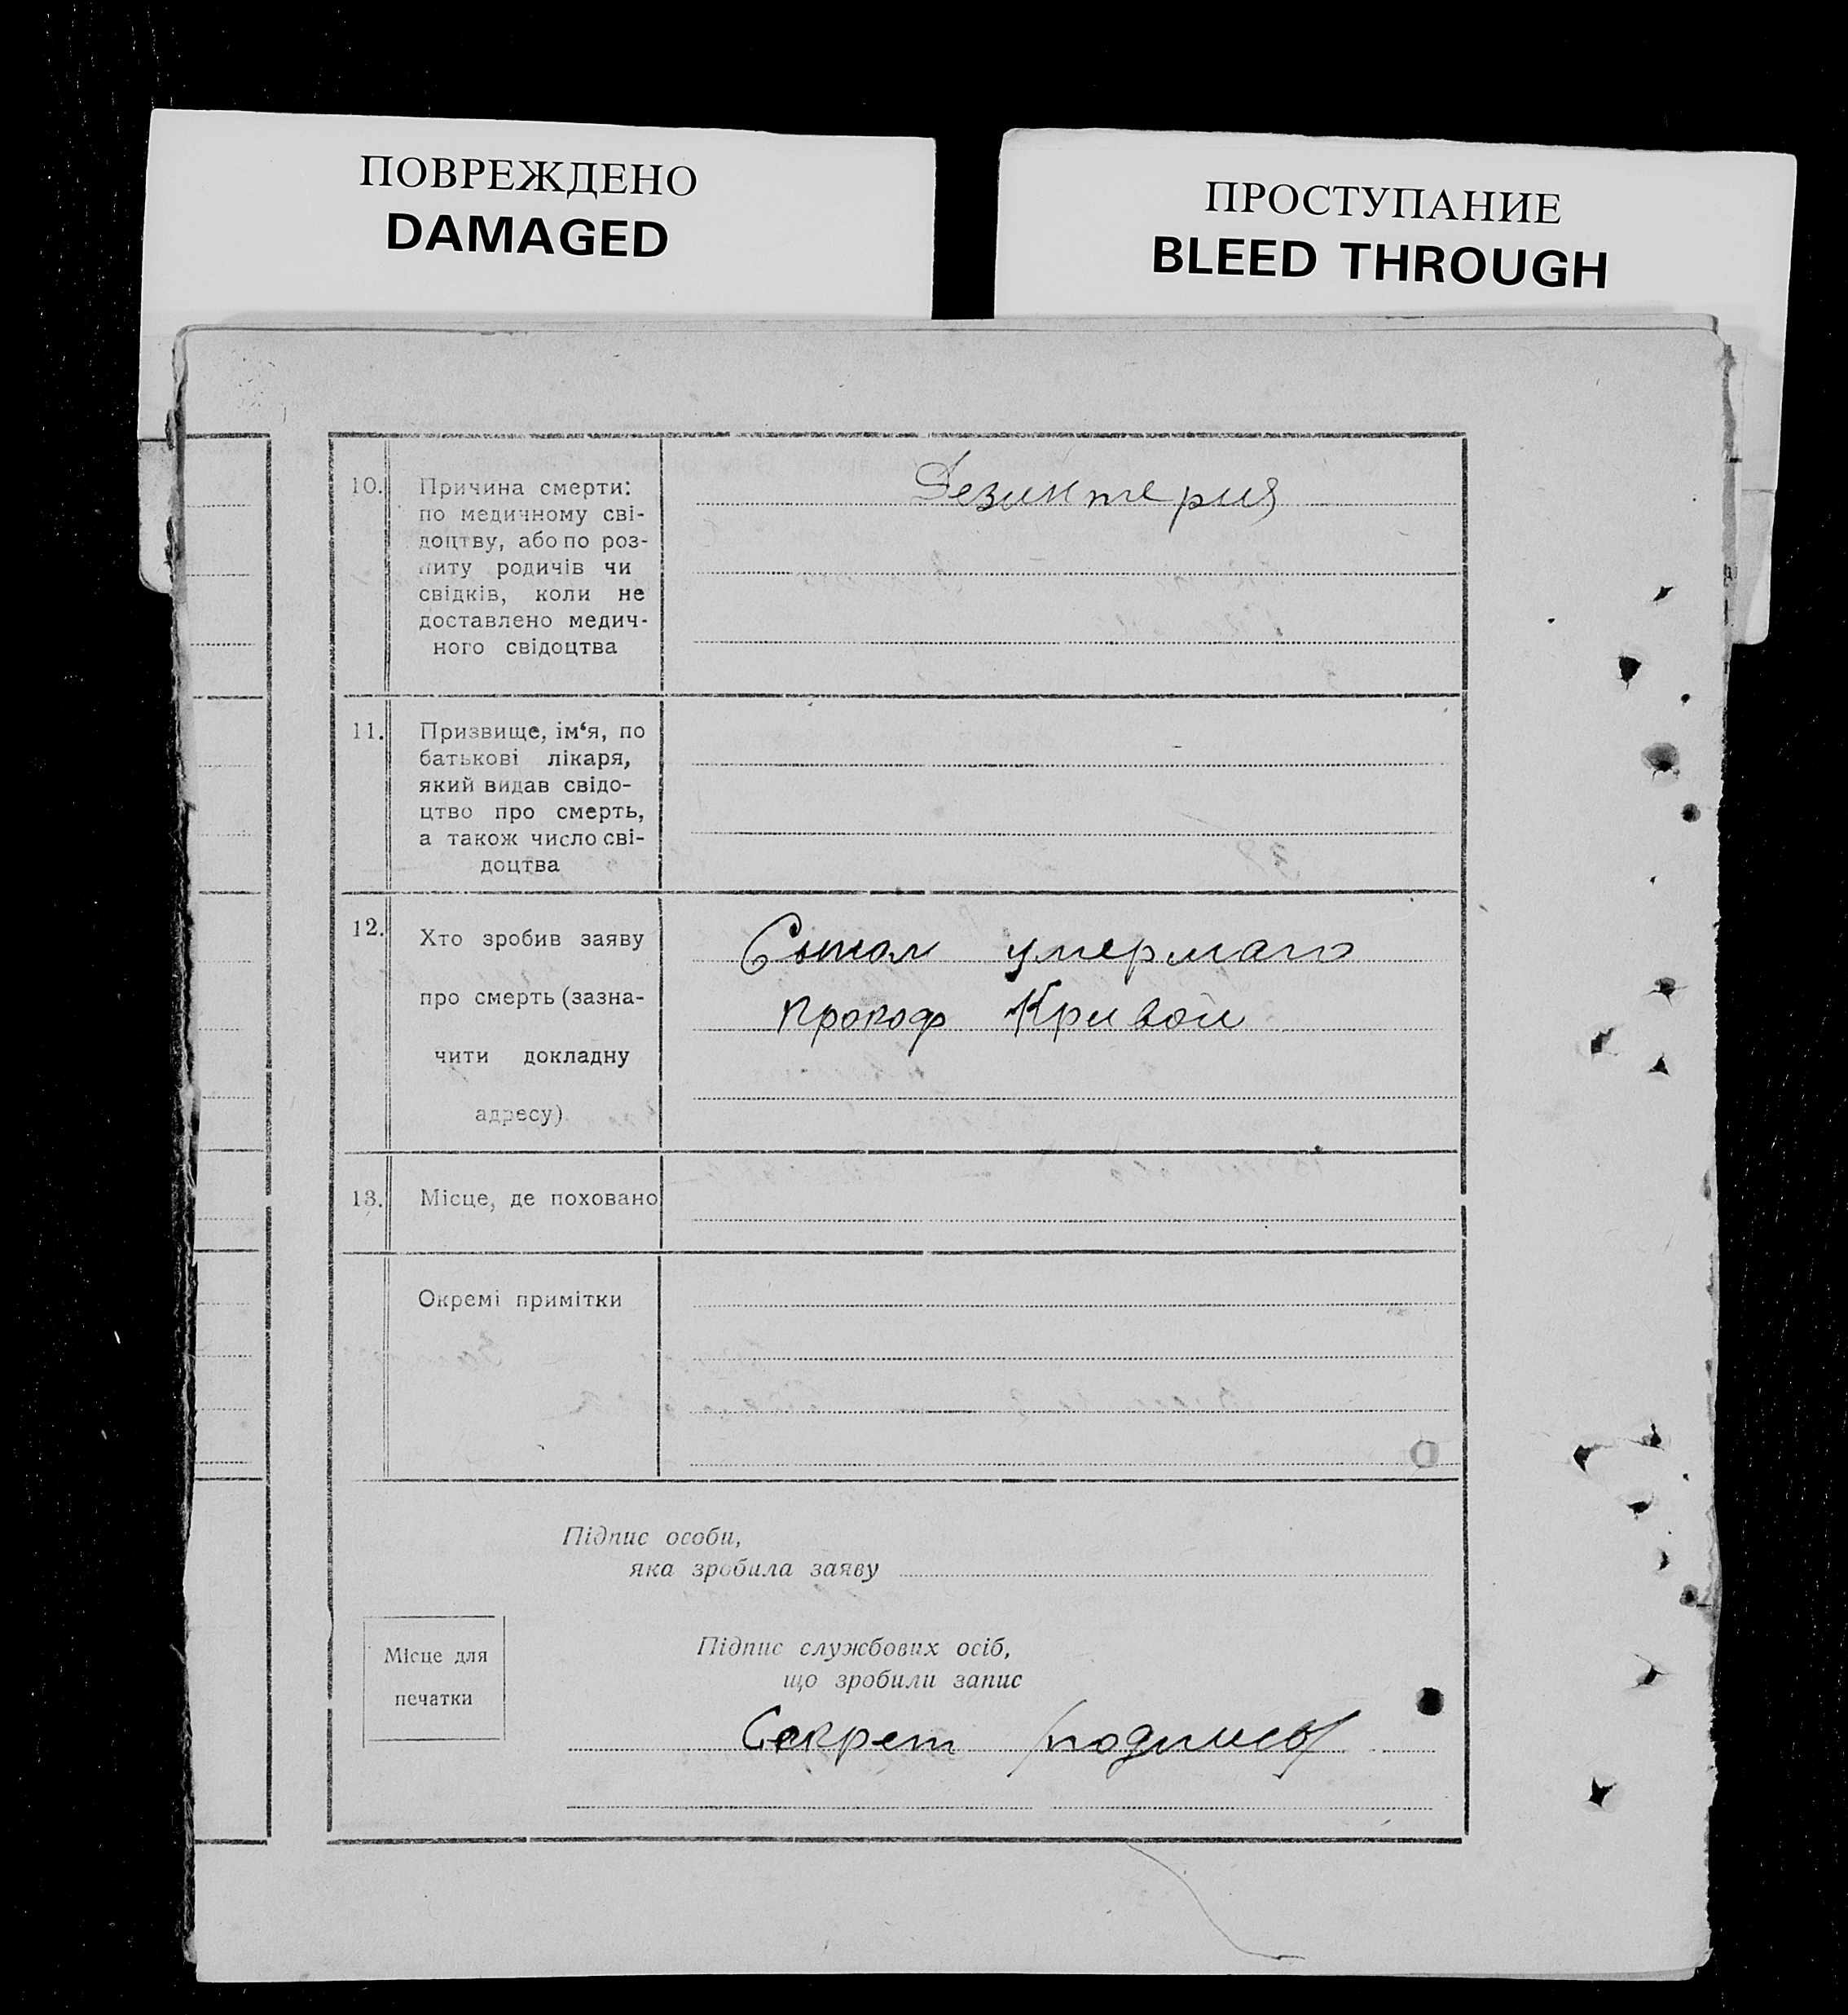 ПОВРЕЖДЕНО
DAMAGED
ПРОСТУПАНИЕ
BLEED THROUGH
10. Причина смерти:
по медичному сві-
доцтву, або по роз-
питу родичів чи
свідків, коли не
доставлено медич-
ного свідоцтва
Дезинтерия
11. Призвище, ім‘я, по
батькові лікаря,
який видав свідо-
цтво про смерть,
а також число сві-
доцтва
12. Хто зробив заяву
про смерть (зазна-
чити докладну
адресу)
Сыном умершаго
Прокоф Кривой
13. Місце, де поховано
Окремі примітки
Підпис особи,
яка зробила заяву
Місце для
печатки
Підпис службових осіб,
що зробили запис
Секрет /подпись/